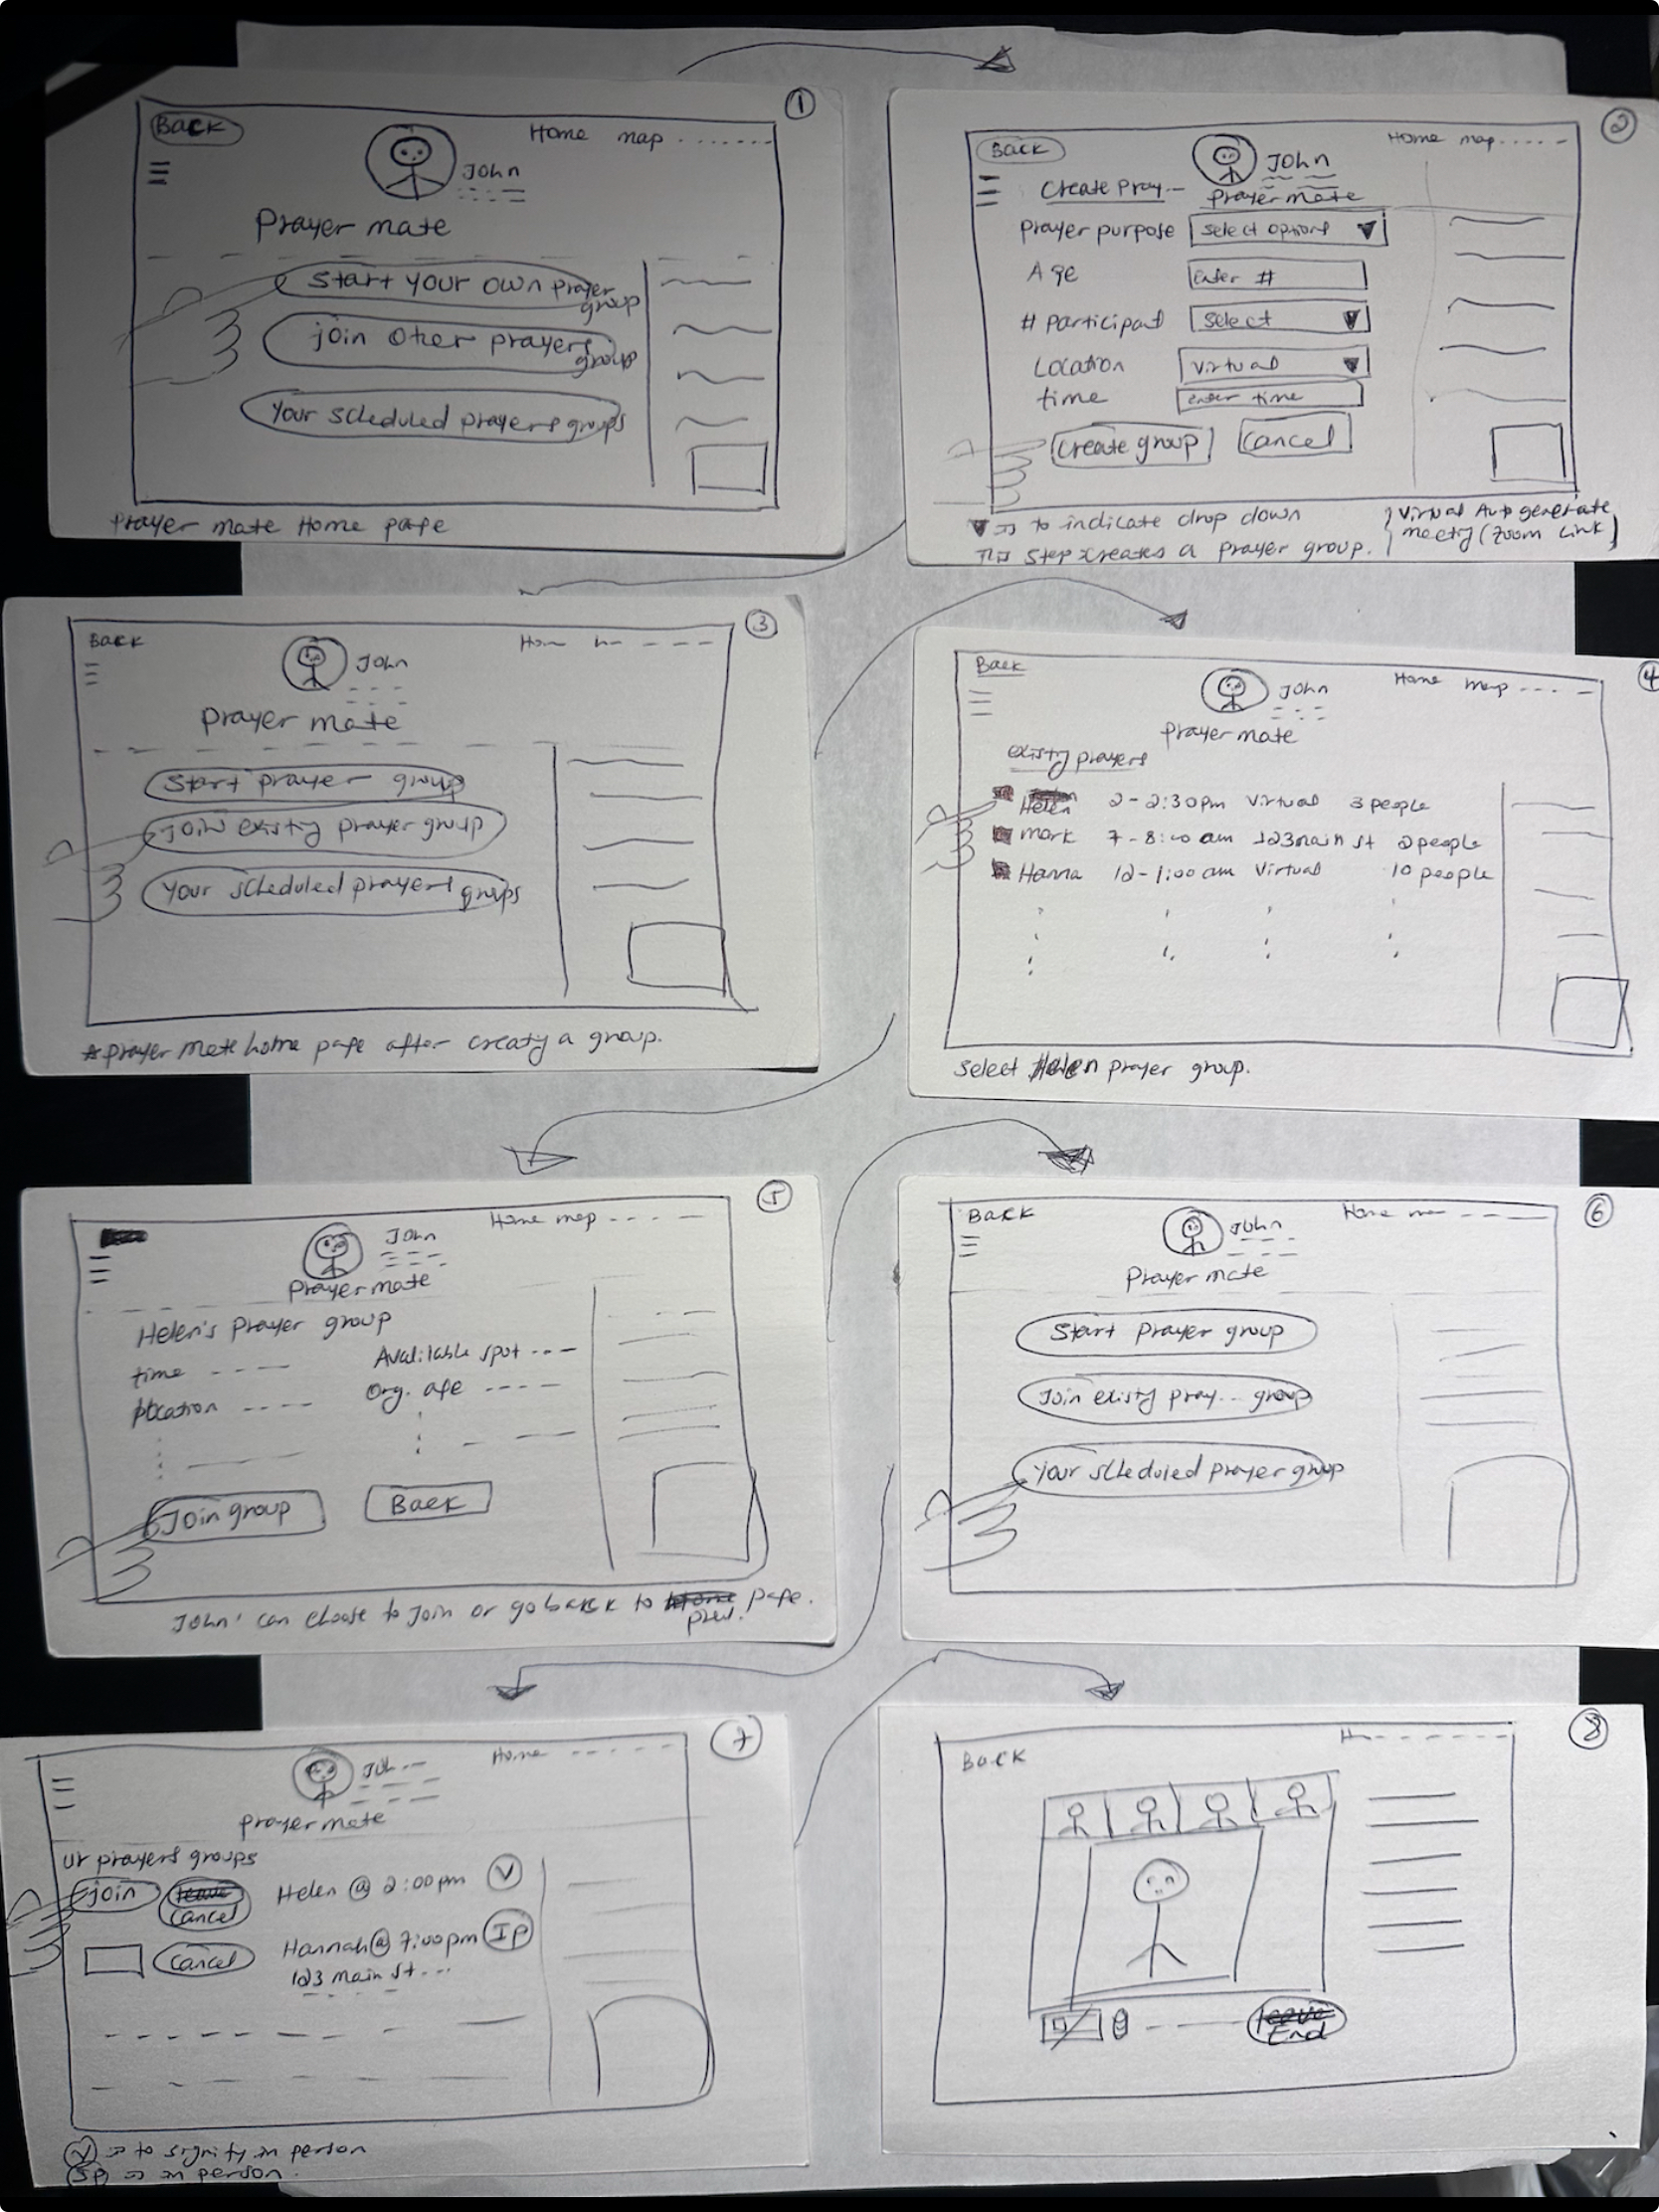 ①
Back
Home map
John
Prayer mate
Start your own prayer group
join other prayers group
Your scheduled prayers groups
Prayer mate Home page
②
Back
Home map
John
Create Pray...
Prayer mate
Prayer purpose Select options ▼
Age enter #
# participant Select ▼
Location Virtual ▼
time enter time
Create group Cancel
▼ => to indicate drop down
This step creates a prayer group.
Virtual Auto generate
meeting (Zoom Link)
③
Back
Hom
John
Prayer mate
Start prayer group
Join existing prayer group
Your scheduled prayers groups
*prayer mate home page after creating a group.
④
Back
Home map
John
Prayer mate
existing prayers
Helen 2-2:30pm Virtual 3 people
Mark 7-8:00 am 123 main st 2 people
Hanna 12-1:00 am Virtual 10 people
Select Helen prayer group.
⑤
Home map
John
Prayer mate
Helen's Prayer group
time
Available spot
location
Org. age
Join group Back
John' can choose to join or go back to prev. page.
⑥
Back
Home
John
Prayer mate
Start prayer group
Join existing pray... group
Your scheduled prayer group
⑦
Home
Joh
Prayer mate
Ur prayers groups
join cancel Helen @ 2:00pm V
cancel Hannah @ 7:00pm IP
123 main st...
V => to signify in person
IP => in person.
⑧
Back
H
End